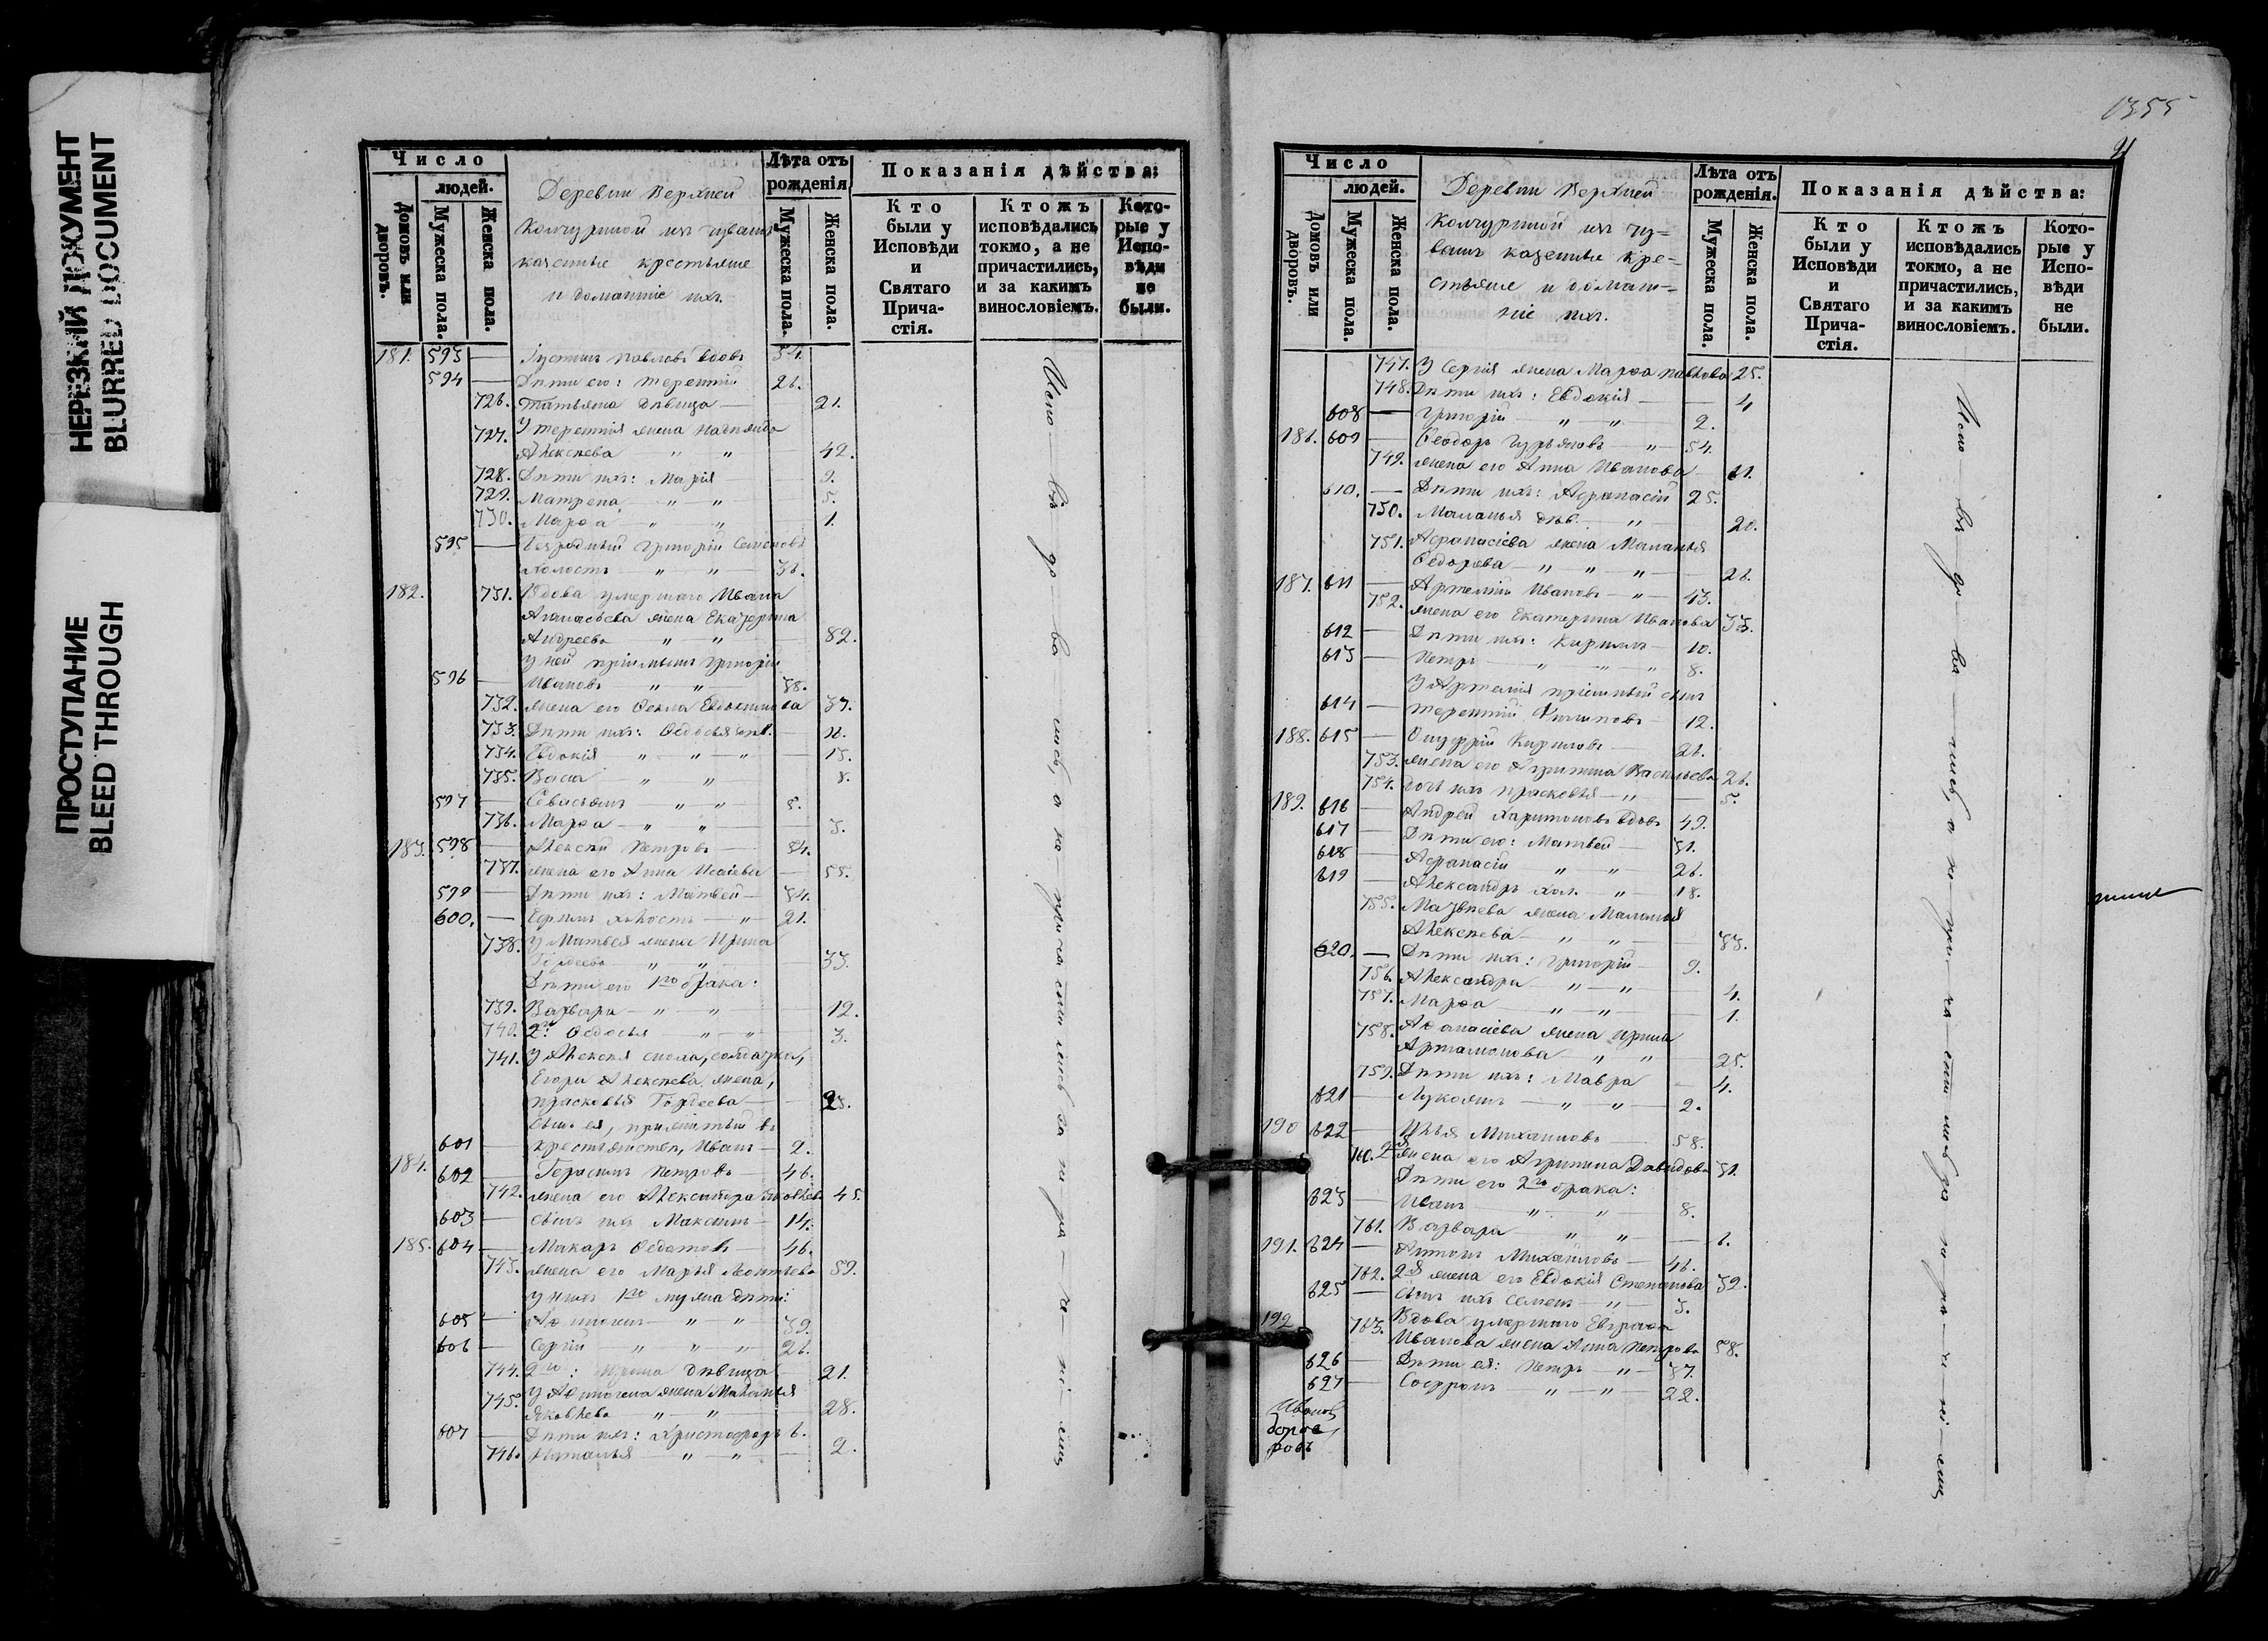 НЕРЕЗКИЙ ДОКУМЕНТ
BLURRED DOCUMENT
ПРОСТУПАНИЕ
BLEED THROUGH
Число
людей.
Домовъ или дворовъ.
Мужеска пола.
Женска пола.
Деревни Верхней
Кочуршой изъ чувашъ
казенные крестьяне
и домашніе ихъ
Лѣта отъ рожденія
Мужеска пола.
Женска пола.
Показанія дѣйства:
Кто были у Исповѣди и Святаго Причастія.
Ктожъ исповѣдались токмо, а не причастились, и за какимъ винословіемъ.
Которые у Исповѣди не были.
181. 593 — Іустинъ Павловъ вдовъ 54.
594 — Дѣти его: Терентій 26.
726. Татьяна дѣвица — 21.
727. У Терентія жена
Алексѣева — " — " — 42.
728. Дѣти ихъ: Марія 9.
729. Матрена — " — " 5.
730. Марѳа — " — " 1.
595 — Григорій Семеновъ
холостъ — " — " — 36.
182. 731. Вдова умершаго Ивана
жена Екатерина
Андреева — " — " — 82.
у ней пріемышъ Григорій
596 — Ивановъ — " — " 38.
732. жена его Ѳекла Евдокимова 37.
733. Дѣти ихъ: Ѳедосья дѣв. —
734. Евдокія — " — " — " — 13.
735. Васса — " — " 8.
597 — Севастьянъ — " — " 5.
736. Марѳа — " — " — 3.
183. 598 — Алексѣй Петровъ — 54.
737. жена его Анна Исаіева — 55.
599 — Дѣти ихъ: Матвей — 34.
600. — Ефимъ холостъ — " — 21.
738. У Матвея жена Ирина
Гордеева — " — " — 33.
Дѣти его 1го брака:
739. Варвара — " — " 12.
740. 2го: Ѳедосья — " — " 3.
741. У Алексѣя сноха, солдатка,
Егора Алексѣева жена,
Прасковья Гордеева —
Сынъ ея, принятый въ
601 — крестьянство, Иванъ — 2.
184. 602 — Герасимъ Петровъ — 46.
742. жена его Александра Яковлева 45.
603 — Сынъ ихъ Максимъ — 14.
185. 604 — Макаръ Ѳедотовъ — 46.
743. жена его Марья Леонтьева 59.
у нихъ 1го мужа дѣти:
605 — Аѳиногенъ — " — " — 39.
606 — Сергій — " — " — " 26.
744. 2го: Ирина дѣвица 21.
745. У Аѳиногена жена Маланья
Яковлева — " — " — 28.
607 — Дѣти ихъ: Христофоръ 6.
746. Наталья — " — " — 2.
Испо — вѣ — до — ва — лись, а не при ча сти лись за не ра — че — ні — емъ
1355
Число
людей.
Домовъ или дворовъ.
Мужеска пола.
Женска пола.
Деревни Верхней
Кочуршой изъ чу=
вашъ казенные кре=
стьяне и домаш=
ніе ихъ.
Лѣта отъ рожденія.
Мужеска пола.
Женска пола.
Показанія дѣйства:
Кто были у Исповѣди и Святаго Причастія.
Ктожъ исповѣдались токмо, а не причастились, и за какимъ винословіемъ.
Которые у Исповѣди не были.
747. У Сергія жена Марѳа Павлова 25.
748. Дѣти ихъ: Евдокія — 4
608 — Григорій " — " — 2.
186. 609 — Ѳеодоръ Гурьяновъ — " — 54.
749. жена его Анна Иванова — 61.
610. — Дѣти ихъ: Афанасій 25.
750. Маланья дѣв. — " — 20.
751. Афанасіева жена Маланья
Ѳедорова — " — " — " — 26.
187. 611 — Артемій Ивановъ — " — 43.
752. жена его Екатерина Иванова 33.
612 — Дѣти ихъ: Кирилъ — 10.
613 — Петръ — " — " — " 8.
У Артемія пріемный сынъ
614 — Терентій Филиповъ — 12.
188. 615 — Онуфрій Кириловъ — 26.
753. жена его Агрипина Васильева 26.
754. дочь ихъ Прасковья — " — 5.
189. 616 — Андрей Харитоновъ вдовъ 49.
617 — Дѣти его: Матвей — 31.
618 — Афанасій " — " — 26.
619 — Александръ хол. — " — 18.
755. Матвѣева жена Маланья
Алексѣева — " — " — 33.
620. — Дѣти ихъ: Григорій — 9.
756. Александра — " — " — 4.
757. Марѳа — " — " — 1.
758. Аѳанасіева жена Ирина
Артамонова — " — " — 25.
759. Дѣти ихъ: Мавра — 4.
621 — Лукоянъ — " — " — 2.
190 622 — Илья Михайловъ — 58.
760. 2я жена его Агрипина Давидова 51.
Дѣти его 2го брака:
623 — Иванъ — " — " — 8.
761. Варвара — " — " — 6.
191. 624 — Антонъ Михайловъ — 46.
762. 2я жена его Евдокія Степанова 39.
625 — Сынъ ихъ Семенъ — " — 3.
192 763. Вдова умершаго Евграфа
Иванова жена Анна Петрова 58.
626 — Дѣти ея: Петръ " — 37.
627 — Софронъ — " — " — 22.
Испо — вѣ — до — ва — лись, а не при — ча — сти — лись за не ра — че — ні — емъ